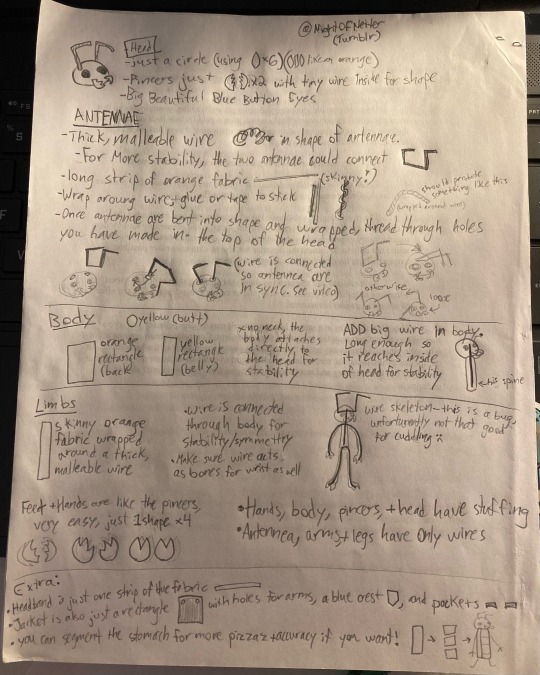 @NightOfNetter
(Tumblr)
Head
-Just a circle (using ()x6)(like an orange)
-Pincers just x2 with tiny wire inside for shape
-Big Beautiful Blue Button Eyes
ANTENNAE
-Thick, malleable wire in shape of antennae.
-For More stability, the two antennae could connect
-long strip of orange fabric (skinny!)
-Wrap around wire+glue or tape to stick
should probable
something like this
(wrapped around wire)
-Once antennae are bent into shape and wrapped, thread through holes
you have made in the top of the head
(wire is connected
so antenna are
in sync. See video)
otherwise
loose
Body
O yellow (butt)
orange
rectangle
(back
yellow
rectangle
(belly)
x no neck, the
body attaches
directly to
the head for
stability
ADD big wire in body.
Long enough so
it reaches inside
of head for stability
his spine
Limbs
skinny orange
fabric wrapped
around a thick,
malleable wire
•wire is connected
through body for
stability/symmetry
•Make sure wire acts
as bones for wrist as well
wire skeleton-this is a bug,
unfortunently not that good
for cuddling :(
Feet+Hands are like the pincers,
very easy, just 1 shape x4
•Hands, body, pincers, + head have stuffing
•Antennea, arms+legs have Only wires
Extra:
•Headband is just one strip of blue fabric
•Jacket is also just a rectangle with holes for arms, a blue crest, and pockets
•you can segment the stomach for more pizzaz +accuracy if you want!